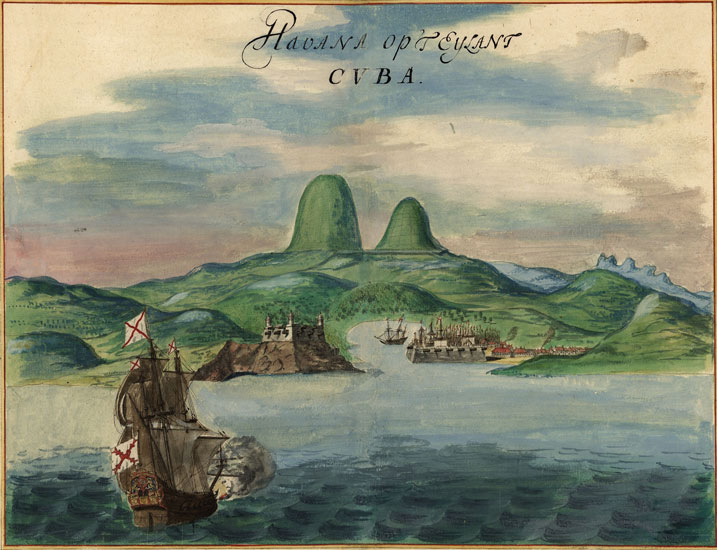 Havana op't Eylant
CVBA.